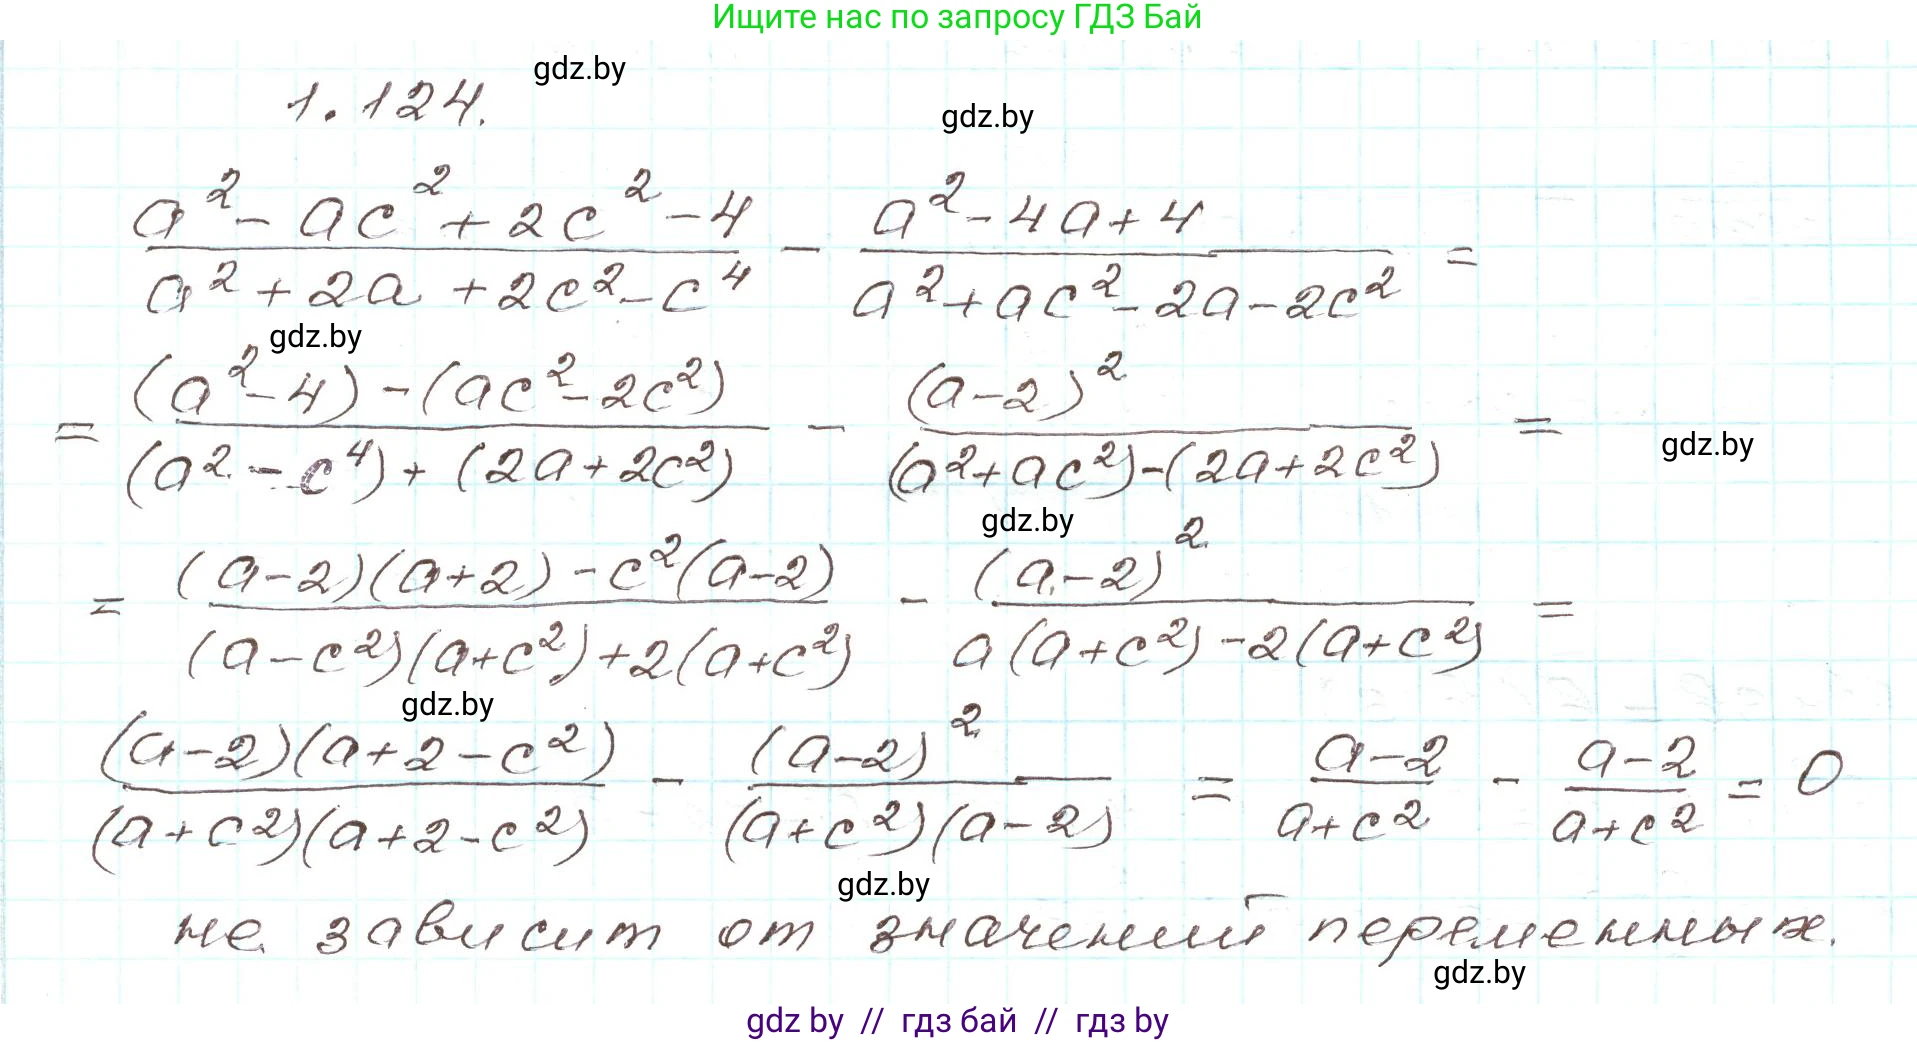 Ищите нас по запросу ГДЗ Бай
gdz.by
1.124.
gdz.by
(a² - ac² + 2c² - 4)/(a² + 2a + 2c² - c⁴) - (a² - 4a + 4)/(a² + ac² - 2a - 2c²) =
gdz.by
= ((a² - 4) - (ac² - 2c²))/((a² - c⁴) + (2a + 2c²)) - (a - 2)²/((a² + ac²) - (2a + 2c²)) =
gdz.by
gdz.by
= ((a - 2)(a + 2) - c²(a - 2))/((a - c²)(a + c²) + 2(a + c²)) - (a - 2)²/(a(a + c²) - 2(a + c²)) =
gdz.by
((a - 2)(a + 2 - c²))/((a + c²)(a + 2 - c²)) - (a - 2)²/((a + c²)(a - 2)) = (a - 2)/(a + c²) - (a - 2)/(a + c²) = 0
gdz.by
не зависит от значений переменных.
gdz.by
gdz by // гдз бай // гдз by